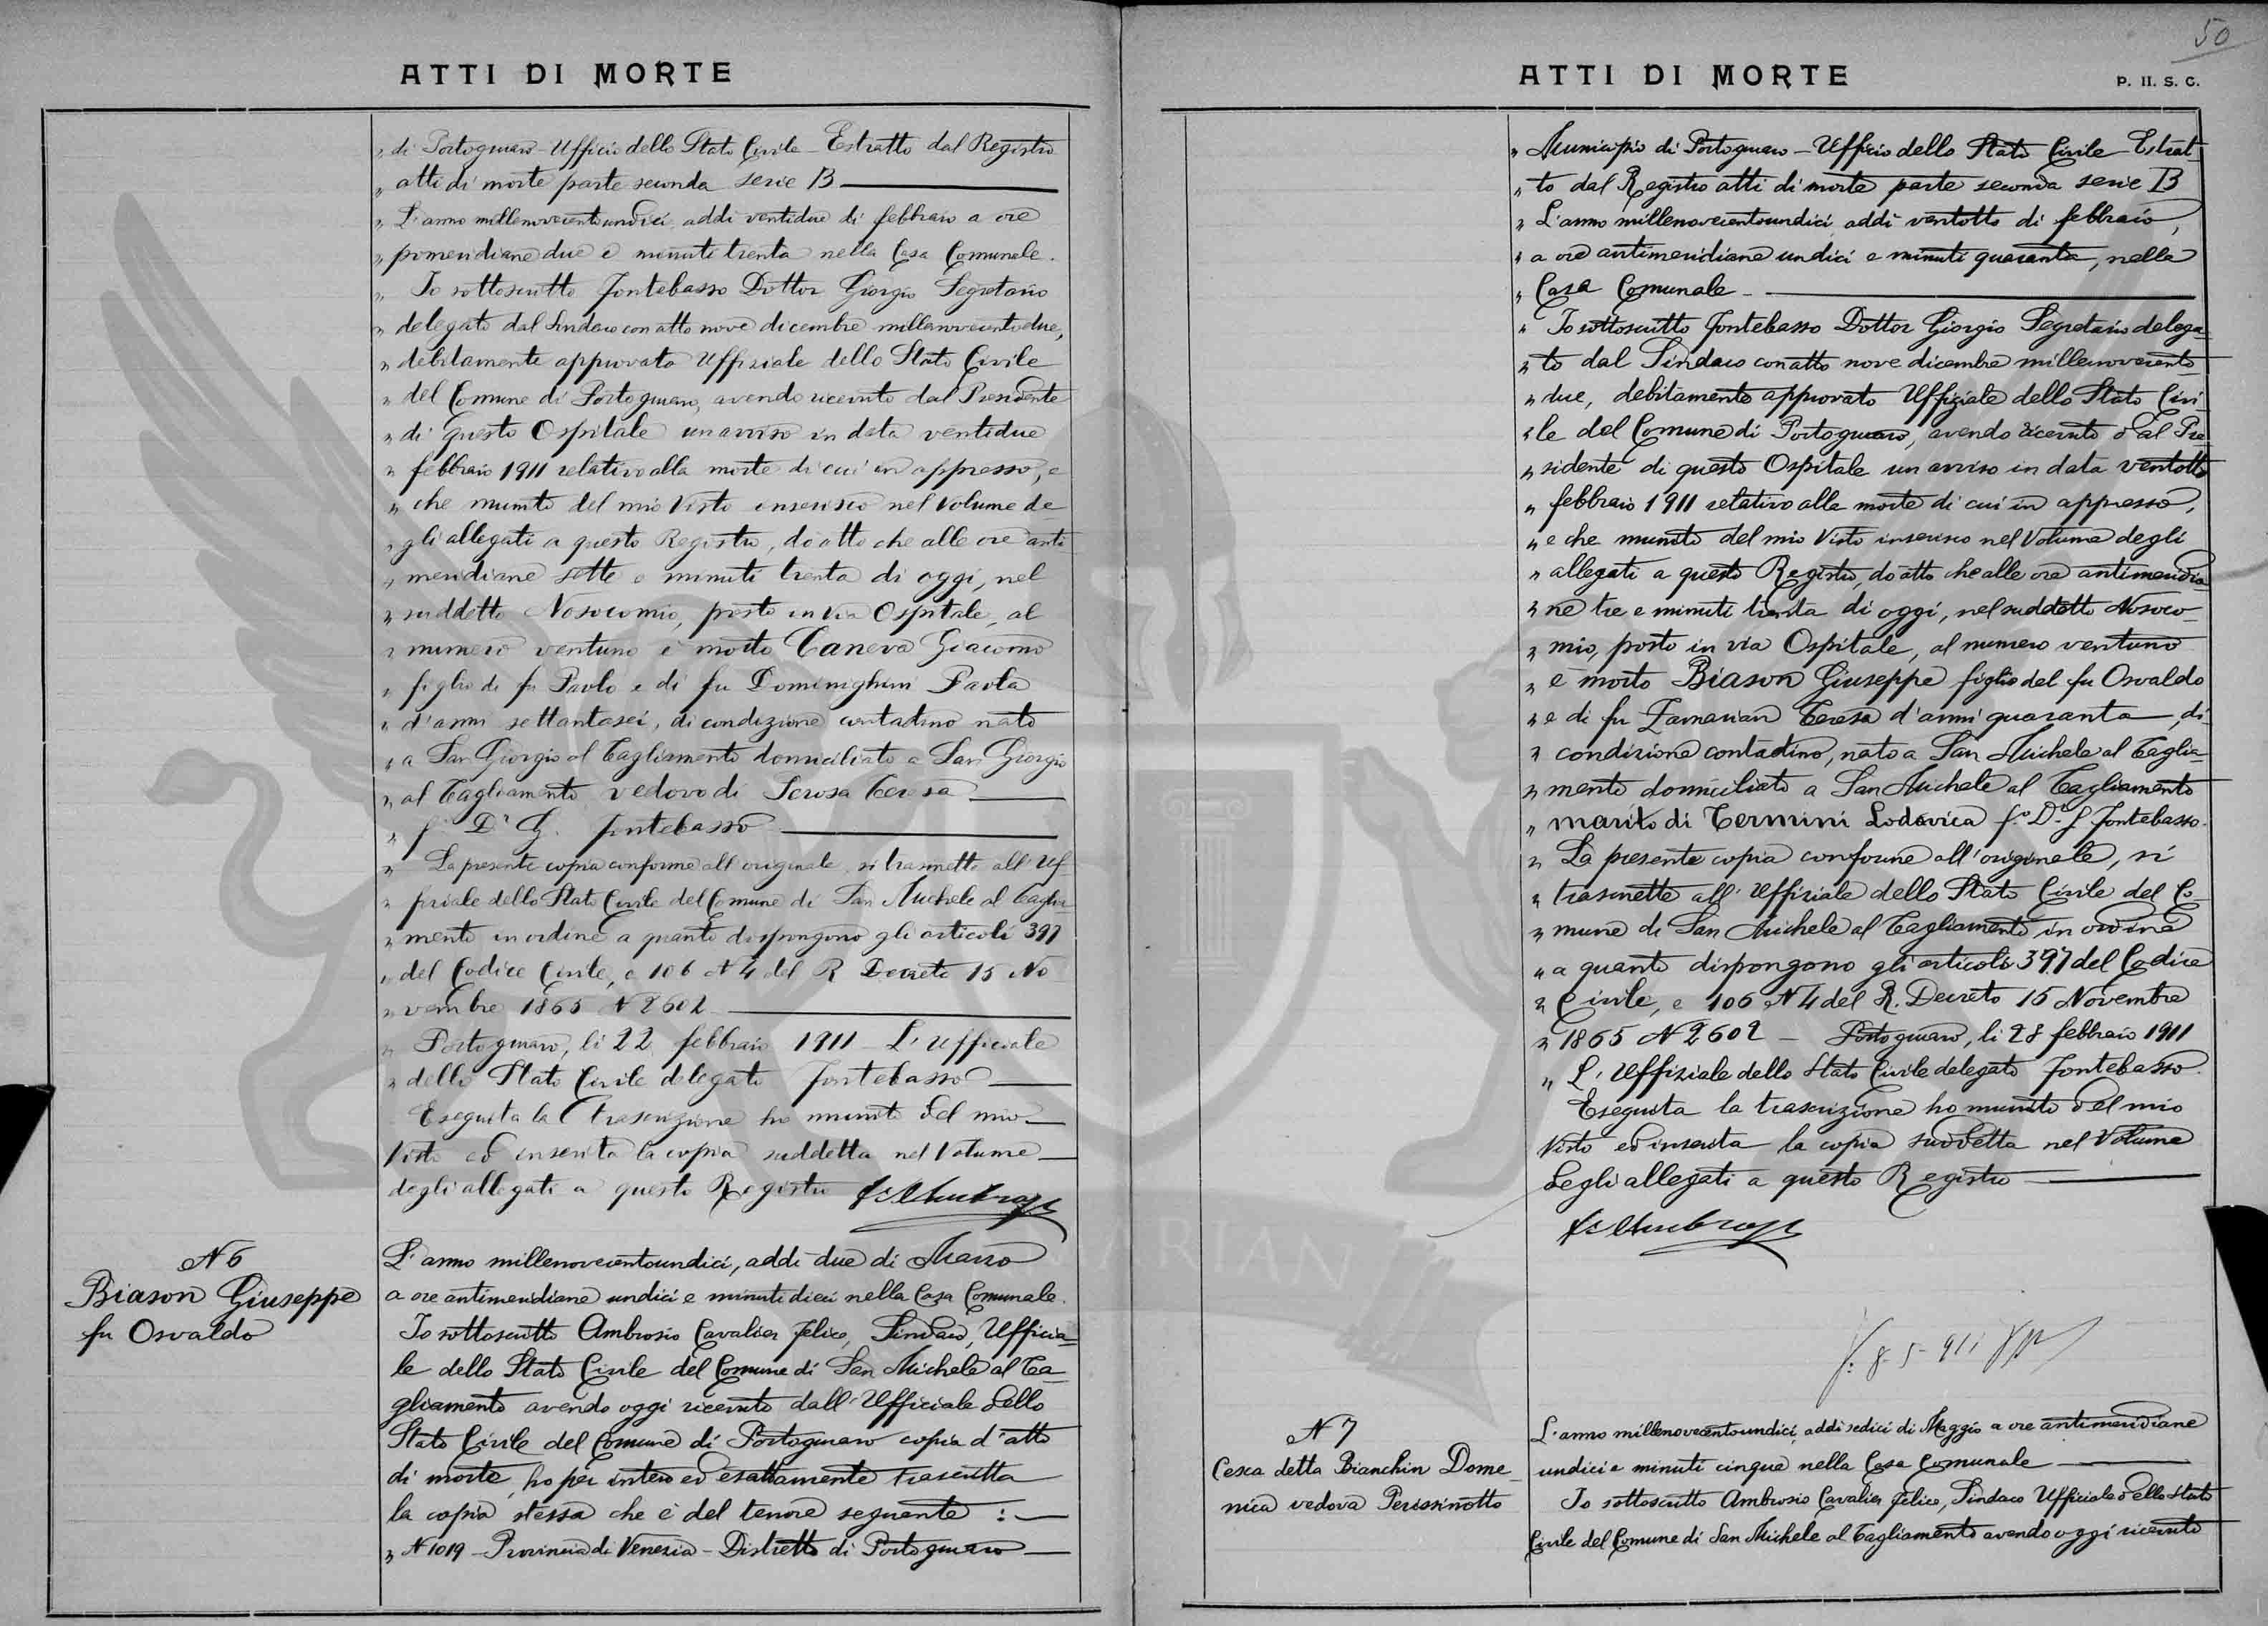 ATTI DI MORTE
„ di Portogruaro - Ufficio dello Stato Civile - Estratto dal Registro
„ atti di morte parte seconda serie B
„ L'anno millenovecentoundici addi ventidue di febbraio a ore
„ pomeridiane due e minuti trenta nella Casa Comunale.
„ Io sottoscritto Fontebasso Dottor Giorgio Segretario
„ delegato dal Sindaco con atto nove dicembre millenovecentodue,
„ debitamente approvato Uffiziale dello Stato Civile
„ del Comune di Portogruaro, avendo ricevuto dal Presidente
„ di questo Ospitale un avviso in data ventidue
„ febbraio 1911 relativo alla morte di cui in appresso, e
„ che munito del mio Visto inserisco nel Volume de
„ gli allegati a questo Registro, do atto che alle ore anti
„ meridiane sette e minuti trenta di oggi, nel
„ suddetto Nosocomio, posto in via Ospitale, al
„ numero ventuno è morto Caneva Giacomo
„ figlio di fu Paolo e di fu Dominighini Paola
„ d'anni settantasei, di condizione contadino nato
„ a San Giorgio al Tagliamento domiciliato a San Giorgio
„ al Tagliamento vedovo di Teresa
„ f° D' G. Fontebasso
„ La presente copia conforme all'originale, si trasmette all'Uf
„ fiziale dello Stato Civile del Comune di San Michele al Taglia-
„ mento in ordine a quanto dispongono gli articoli 397
„ del Codice Civile, e 106 N 4 del R Decreto 15 No
„ vembre 1865 N 2602
„ Portogruaro, li 22 febbraio 1911 - L'Ufficiale
„ dello Stato Civile delegato Fontebasso
Eseguita la trascrizione ho munito del mio
Visto ed inserita la copia suddetta nel Volume
degli allegati a questo Registro
N 6
Biason Giuseppe
fu Osvaldo
L'anno millenovecentoundici, addi due di Marzo
a ore antimeridiane undici e minuti dieci nella Casa Comunale.
Io sottoscritto Ambrosio Cavalier Felice, Sindaco, Ufficia-
le dello Stato Civile del Comune di San Michele al Ta-
gliamento avendo oggi ricevuto dall'Ufficiale dello
Stato Civile del Comune di Portogruaro copia d'atto
di morte, ho per intero ed esattamente trascritta
la copia stessa che è del tenore seguente :
„ N 1019 - Provincia di Venezia - Distretto di Portogruaro
50
ATTI DI MORTE
P. II. S. C.
„ Municipio di Portogruaro - Ufficio dello Stato Civile Estrat
„ to dal Registro atti di morte parte seconda serie B
„ L'anno millenovecentoundici, addi ventotto di febbraio,
„ a ore antimeridiane undici e minuti quaranta, nella
„ Casa Comunale
„ Io sottoscritto Fontebasso Dottor Giorgio Segretario delega
„ to dal Sindaco con atto nove dicembre millenovecento
„ due, debitamente approvato Uffiziale dello Stato Civi-
„ le del Comune di Portogruaro, avendo ricevuto dal Pre
„ sidente di questo Ospitale un avviso in data ventotto
„ febbraio 1911 relativo alla morte di cui in appresso,
„ e che munito del mio Visto inserisco nel Volume degli
„ allegati a questo Registro, do atto che alle ore antimeridia-
„ ne tre e minuti trenta di oggi, nel suddetto Nosoco-
„ mio, posto in via Ospitale, al numero ventuno
„ è morto Biason Giuseppe figlio del fu Osvaldo
„ e di fu Zamarian Teresa d'anni quaranta, di
„ condizione contadino, nato a San Michele al Taglia-
„ mento domiciliato a San Michele al Tagliamento
„ marito di Termini Lodovica f.° D.r G Fontebasso.
„ La presente copia conforme all'originale, si
„ trasmette all'Uffiziale dello Stato Civile del Co-
„ mune di San Michele al Tagliamento in ordine
„ a quanto dispongono gli articoli 397 del Codice
„ Civile, e 106 N 4 del R. Decreto 15 Novembre
„ 1865 N 2602 - Portogruaro, li 28 febbraio 1911
„ L'Uffiziale dello Stato Civile delegato Fontebasso.
Eseguita la trascrizione ho munito del mio
Visto ed inserita la copia suddetta nel Volume
degli allegati a questo Registro
N 7
Cesca detta Bianchin Dome
nica vedova Perissinotto
L'anno millenovecentoundici, addi sedici di Maggio a ore antimeridiane
undici e minuti cinque nella Casa Comunale
Io sottoscritto Ambrosio Cavalier Felice, Sindaco Ufficiale dello Stato
Civile del Comune di San Michele al Tagliamento avendo oggi ricevuto